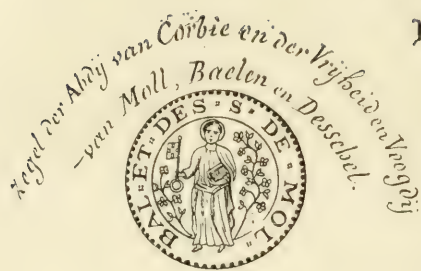 Zegel der Abdij van Corbie en der Vrijheid en Voogdij
van Moll, Baelen en Desschel.
BAL=ET=DES=S=DE=MOL=